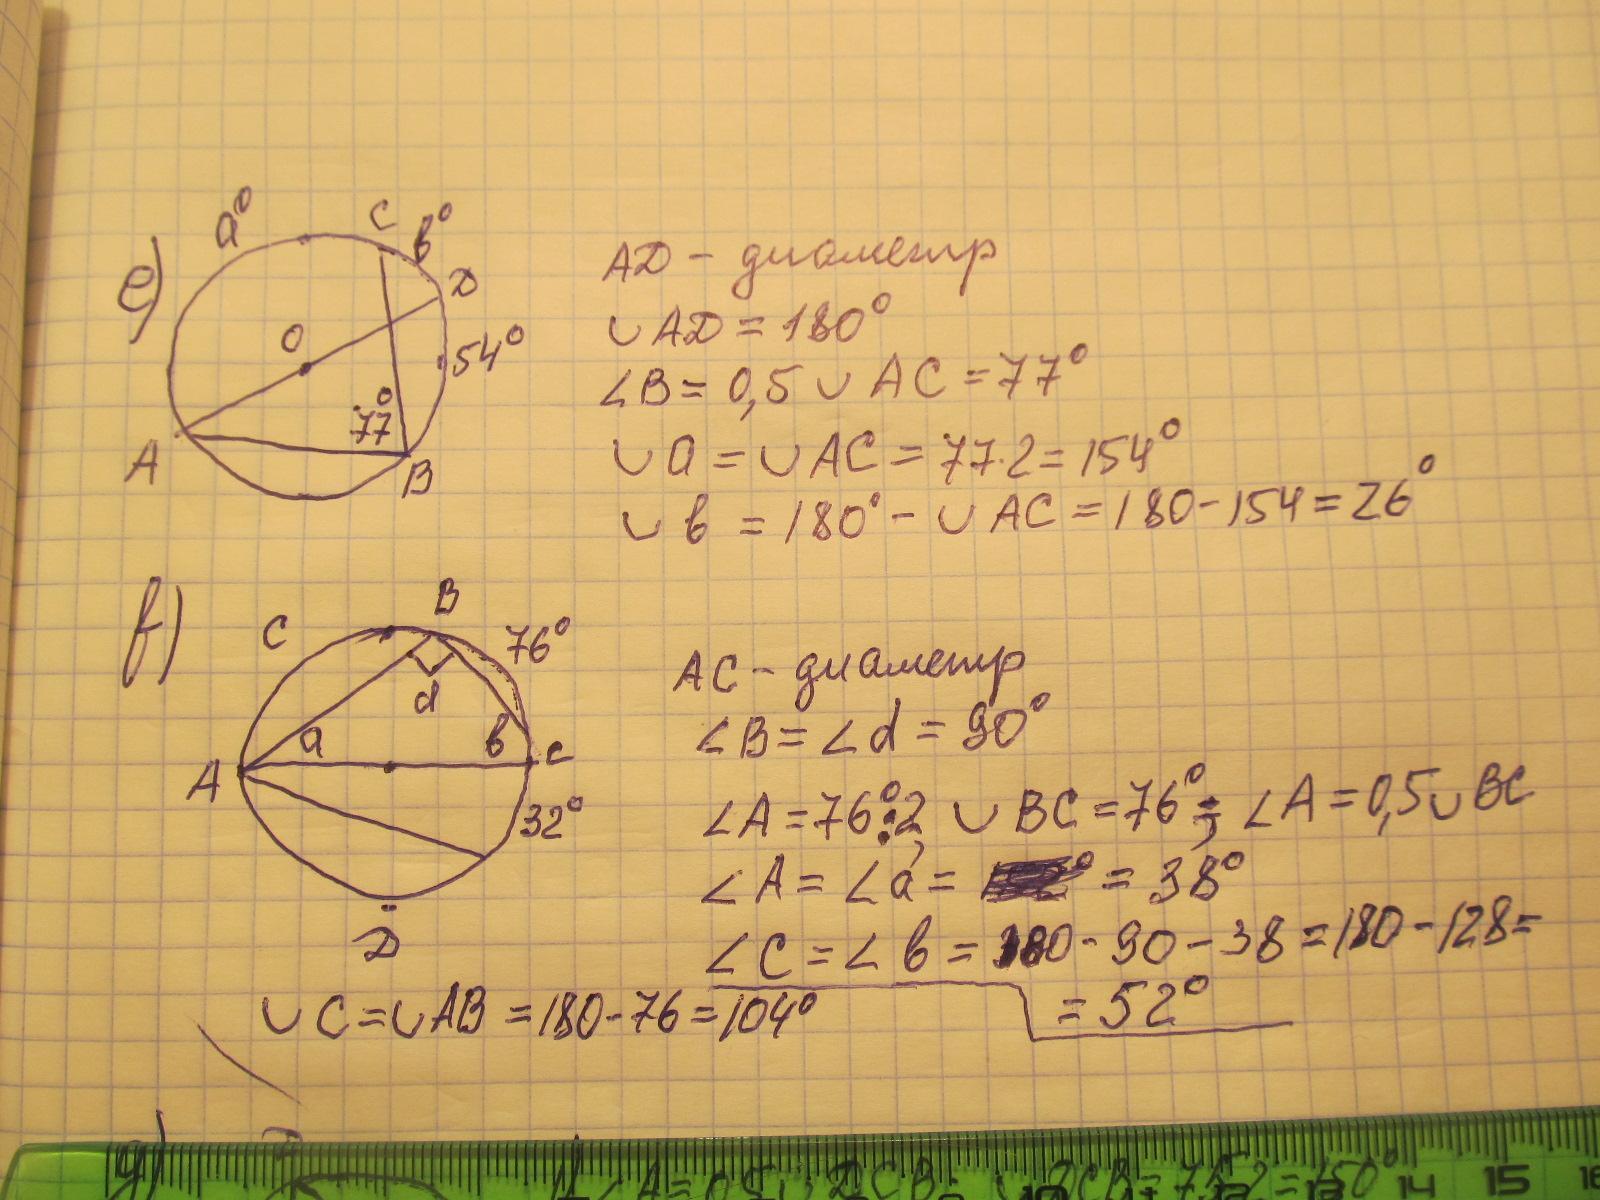 e)
a°
C
b°
D
O
54°
77°
A
B
AD - диаметр
∪AD = 180°
∠B = 0,5 ∪ AC = 77°
∪a = ∪AC = 77·2 = 154°
∪b = 180° - ∪AC = 180-154 = 26°
f)
C
B
76°
d
a
b
A
c
32°
D
AC - диаметр
∠B = ∠d = 90°
∠A = 76°:2, ∪BC = 76°; ∠A = 0,5∪BC
∠A = ∠a = = 38°
∠C = ∠b = 180 - 90 - 38 = 180 - 128 =
= 52°
∪C = ∪AB = 180-76 = 104°
g)
14
15